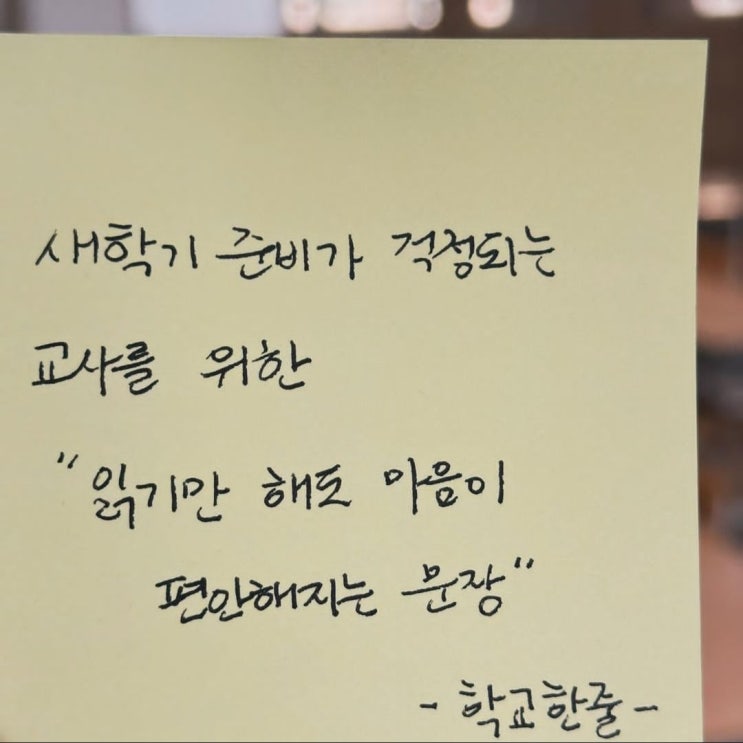 새학기 준비가 걱정되는
교사를 위한
"읽기만 해도 마음이
편안해지는 문장"
- 학교한줄 -